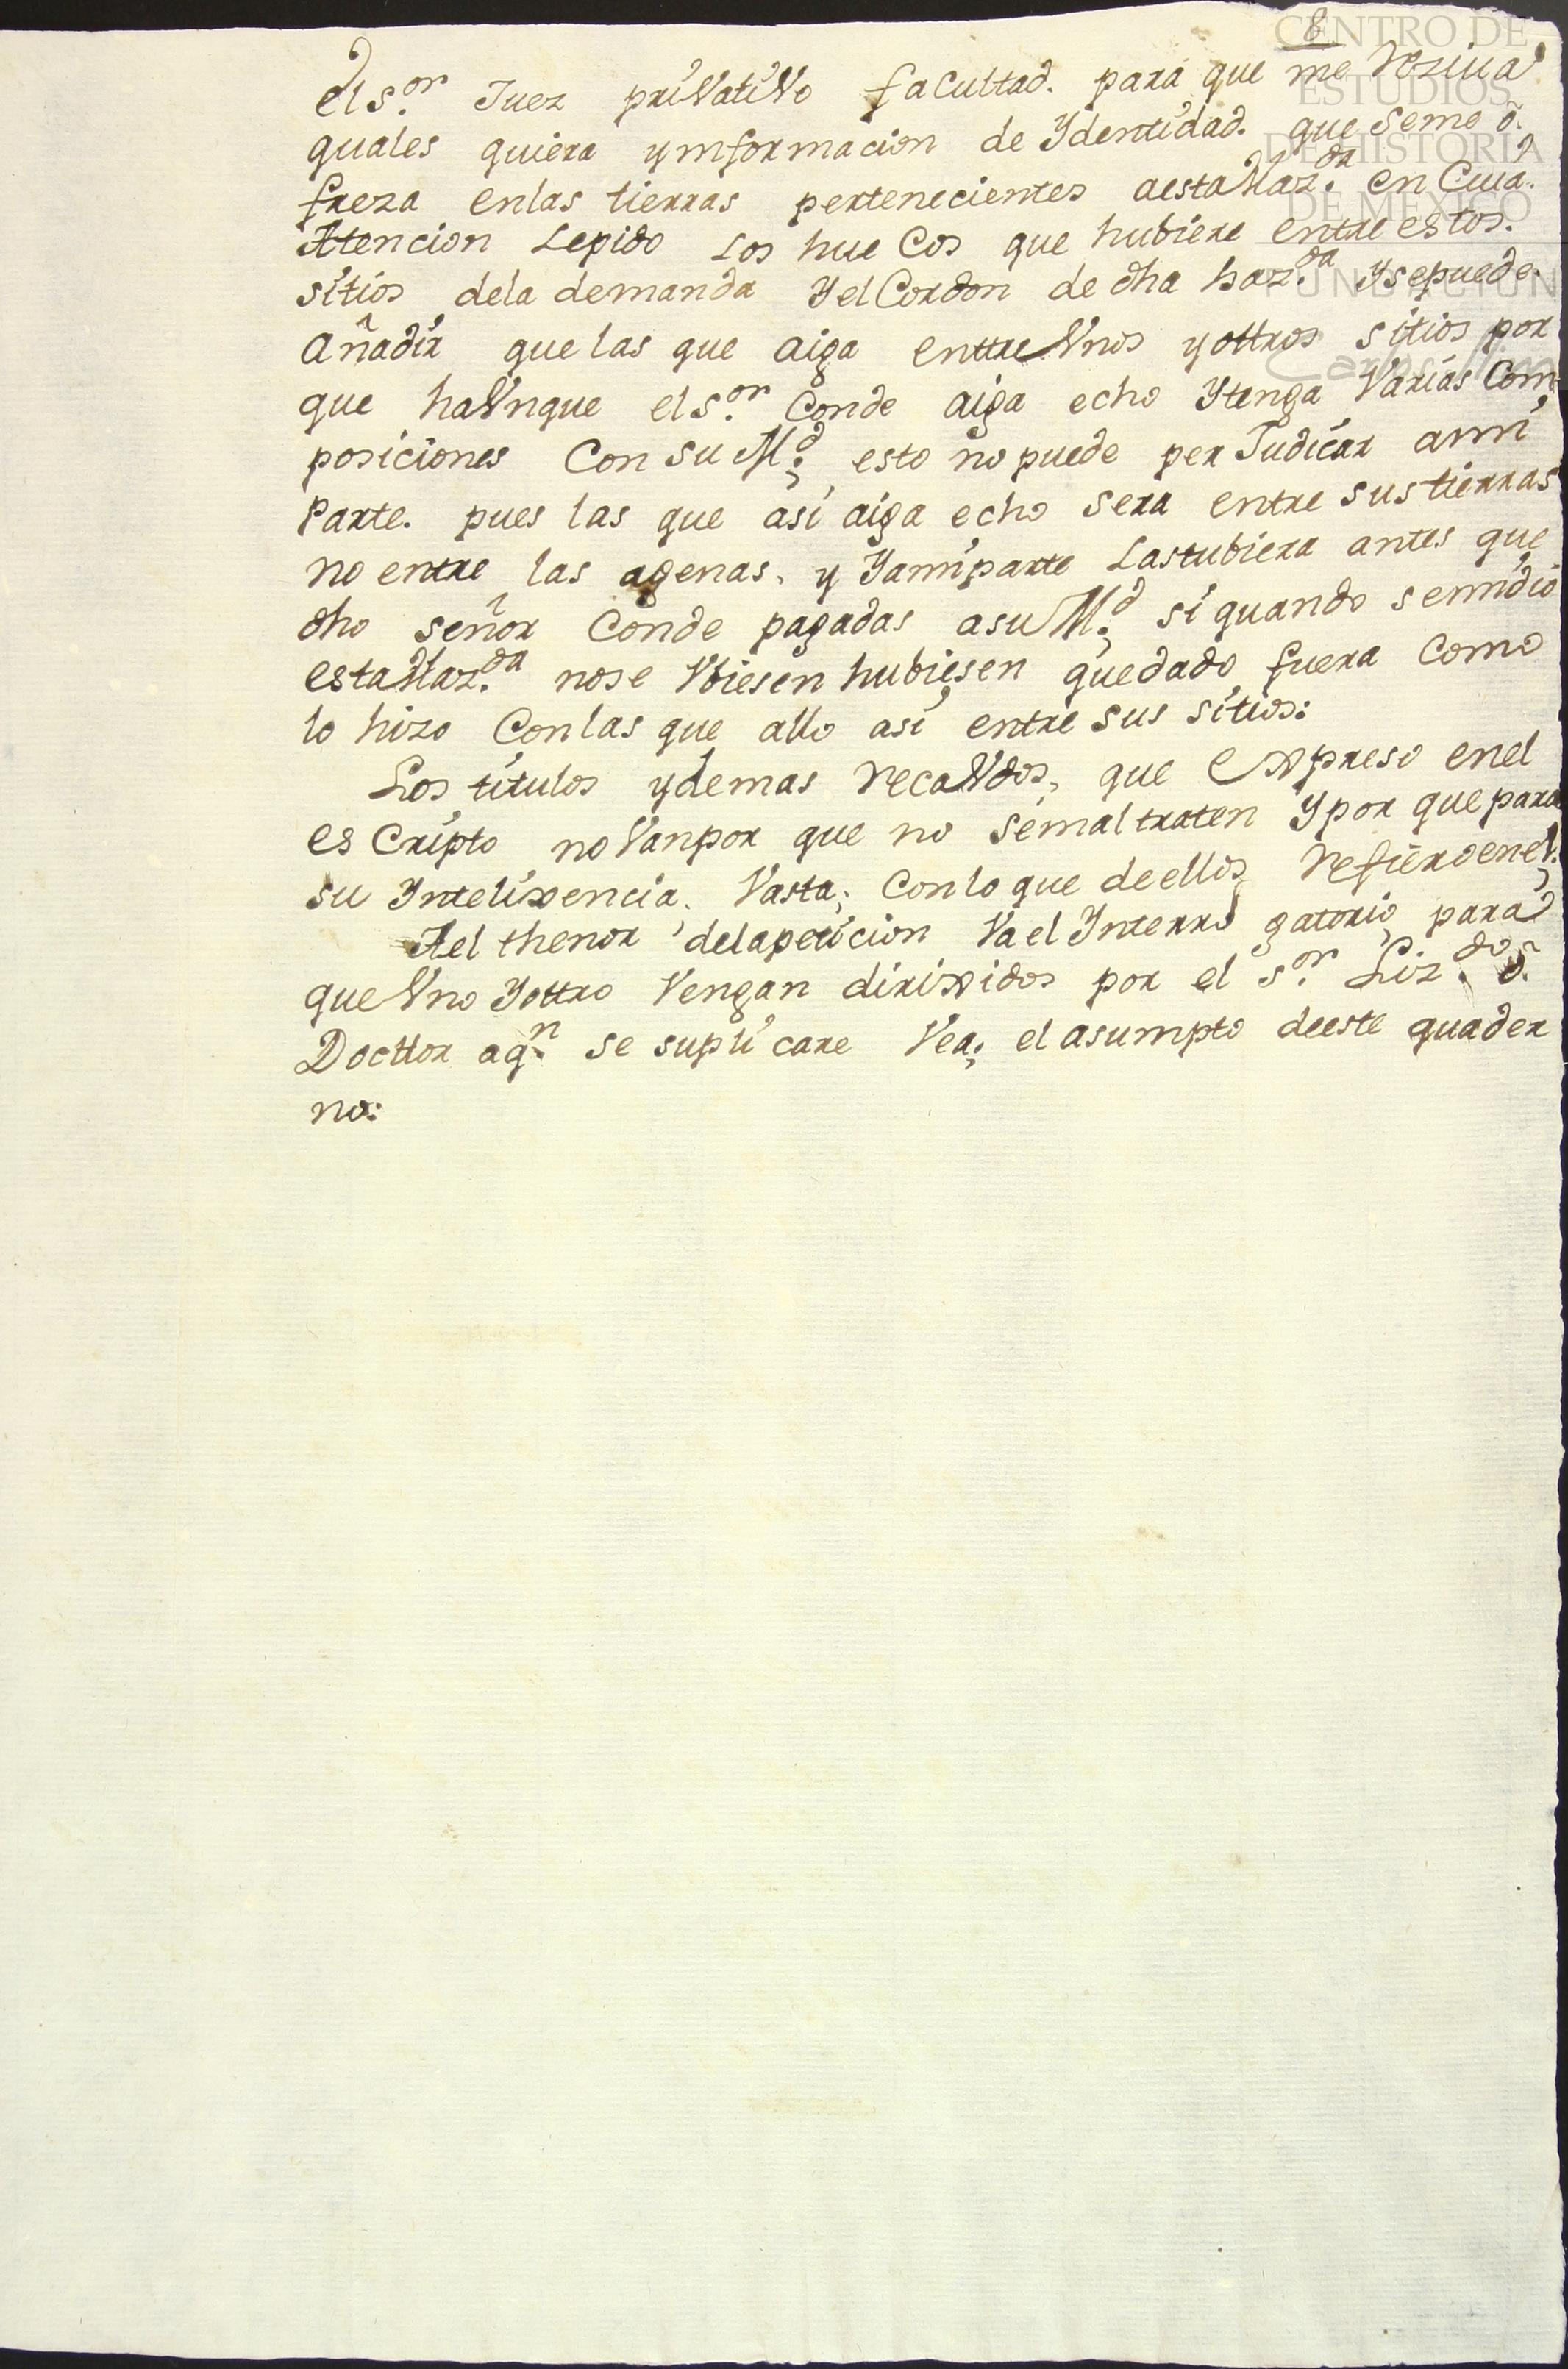 8
CENTRO DE
ESTUDIOS
DE HISTORIA
DE MÉXICO
FUNDACIÓN
el s.or Juez priVatiVo facultad. para que me Rziua
quales quiera ymformacion de Ydentidad. que seme õ
freza enlas tierras pertenecientes aestaHaz.da en Cuia.
Atencion Lepido Los hue Cos que hubiere entre estos.
sitios dela demanda Yel Cordon de dha haz.da Ysepuede.
Añadir que las que aiga enttre Vnos yottros sitios por
que haVnque el s.or Conde aiga echo Ytenga Varias Com
posiciones Con su M.d esto no puede per Judicar ami
Parte. pues las que asi aiga echo sera entre sus tierras
no entre las agenas. y Yamiparte Lastubiera antes que
dho señor Conde pagadas asu M.d si quando semidio
estaHaz.da nose Vbiesen hubiesen quedado fuera Como
lo hizo Con las que allo asi entre sus sitios:
Los titulos ydemas recaVdos, que Expreso enel
es Cripto no Vanpor que no semal traten Ypor que para
su Ynteligencia. Vasta; Conlo que deellos refieroenel.
Ael thenor delapeticion Va el Ynterro gatorio para
que Vno Yottro Vengan dirixidos por el s.or Liz.do õ
Docttor aq.n se supli care Vea; el asumpto deeste quader
no: